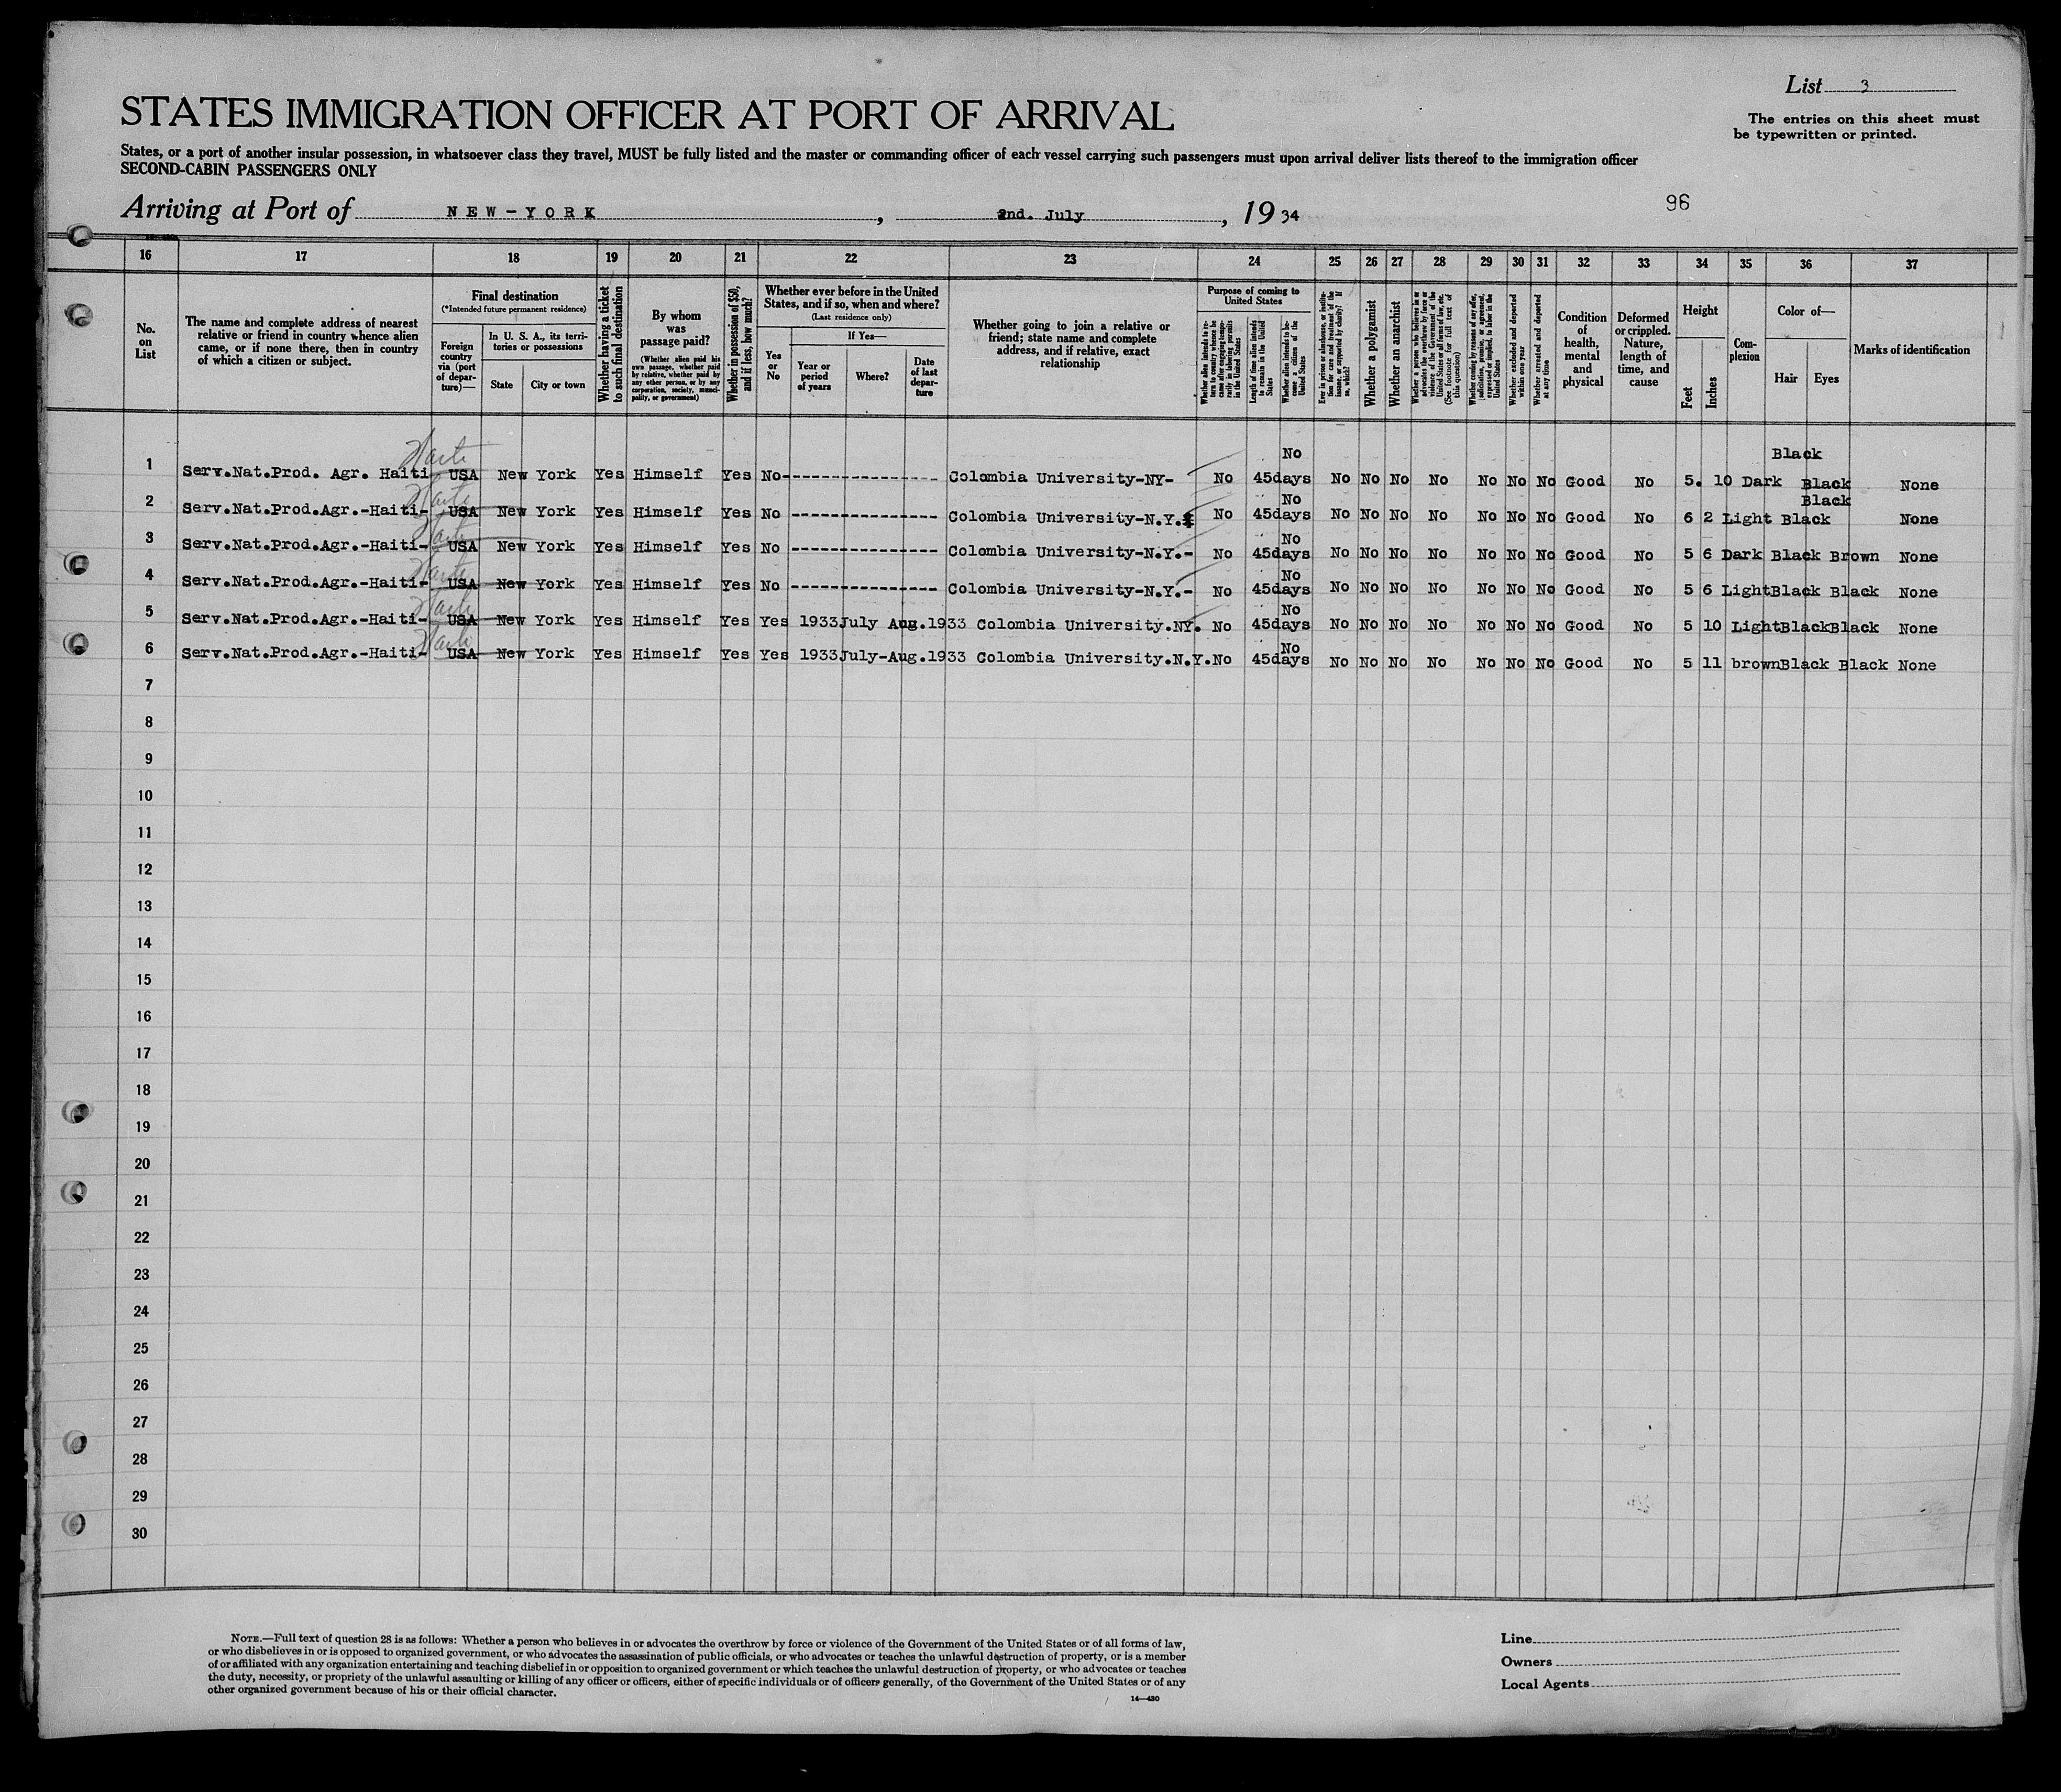 List 3
STATES IMMIGRATION OFFICER AT PORT OF ARRIVAL
The entries on this sheet must
be typewritten or printed.
States, or a port of another insular possession, in whatsoever class they travel, MUST be fully listed and the master or commanding officer of each vessel carrying such passengers must upon arrival deliver lists thereof to the immigration officer
SECOND-CABIN PASSENGERS ONLY
Arriving at Port of NEW-YORK, 2nd. July, 1934
96
16 17 18 19 20 21 22 23 24 25 26 27 28 29 30 31 32 33 34 35 36 37
No. on List
The name and complete address of nearest relative or friend in country whence alien came, or if none there, then in country of which a citizen or subject.
Final destination
(*Intended future permanent residence)
Foreign country via (port of departure)—
In U. S. A., its territories or possessions
State
City or town
Whether having a ticket to such final destination
By whom was passage paid?
(Whether alien paid his own passage, whether paid by relative, whether paid by any other person, or by any corporation, society, municipality, or government)
Whether in possession of $50, and if less, how much?
Whether ever before in the United States, and if so, when and where?
(Last residence only)
Yes or No
If Yes—
Year or period of years
Where?
Date of last departure
Whether going to join a relative or friend; state name and complete address, and if relative, exact relationship
Purpose of coming to United States
Whether alien intends to return to country whence he came after engaging temporarily in laboring pursuits in the United States
Length of time alien intends to remain in the United States
Whether alien intends to become a citizen of the United States
Ever in prison or almshouse, or institution for care and treatment of the insane, or supported by charity? If so, which?
Whether a polygamist
Whether an anarchist
Whether a person who believes in or advocates the overthrow by force or violence of the Government of the United States or all forms of law, etc. (See footnote for full text of this question)
Whether coming by reason of any offer, solicitation, promise, or agreement, expressed or implied, to labor in the United States
Whether excluded and deported within one year
Whether arrested and deported at any time
Condition of health, mental and physical
Deformed or crippled. Nature, length of time, and cause
Height
Feet
Inches
Complexion
Color of—
Hair
Eyes
Marks of identification
1 Serv.Nat.Prod. Agr. Haiti Haiti USA New York Yes Himself Yes No----------------- Colombia University-NY- No 45days No No No No No No No No Good No 5. 10 Dark Black Black None
2 Serv.Nat.Prod.Agr.-Haiti- Haiti USA New York Yes Himself Yes No ----------------- Colombia University-N.Y. No 45days No No No No No No No No Good No 6 2 Light Black Black None
3 Serv.Nat.Prod.Agr.-Haiti- Haiti USA New York Yes Himself Yes No ----------------- Colombia University-N.Y.- No 45days No No No No No No No No Good No 5 6 Dark Black Brown None
4 Serv.Nat.Prod.Agr.-Haiti- Haiti USA New York Yes Himself Yes No ----------------- Colombia University-N.Y.- No 45days No No No No No No No No Good No 5 6 LightBlack Black None
5 Serv.Nat.Prod.Agr.-Haiti- Haiti USA New York Yes Himself Yes Yes 1933July Aug.1933 Colombia University.NY. No 45days No No No No No No No No Good No 5 10 LightBlackBlack None
6 Serv.Nat.Prod.Agr.-Haiti- Haiti USA New York Yes Himself Yes Yes 1933July-Aug.1933 Colombia University.N.Y.No 45days No No No No No No No No Good No 5 11 brownBlack Black None
7
8
9
10
11
12
13
14
15
16
17
18
19
20
21
22
23
24
25
26
27
28
29
30
NOTE.—Full text of question 28 is as follows: Whether a person who believes in or advocates the overthrow by force or violence of the Government of the United States or of all forms of law,
or who disbelieves in or is opposed to organized government, or who advocates the assassination of public officials, or who advocates or teaches the unlawful destruction of property, or is a member
of or affiliated with any organization entertaining and teaching disbelief in or opposition to organized government or which teaches the unlawful destruction of property, or who advocates or teaches
the duty, necessity, or propriety of the unlawful assaulting or killing of any officer or officers, either of specific individuals or of officers generally, of the Government of the United States or of any
other organized government because of his or their official character.
14—430
Line
Owners
Local Agents